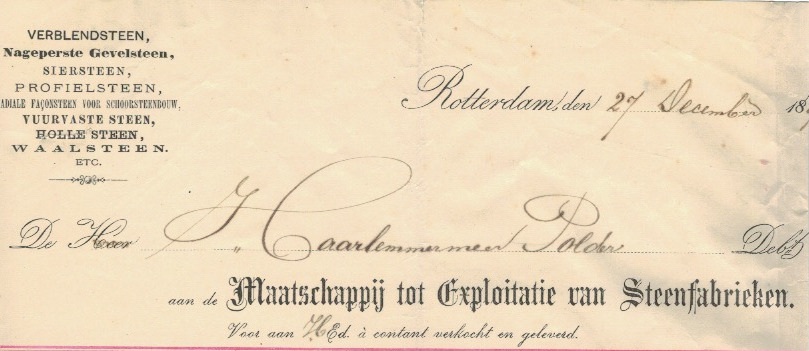 VERBLENDSTEEN,
Nageperste Gevelsteen,
SIERSTEEN,
PROFIELSTEEN,
ADIALE FAÇONSTEEN VOOR SCHOORSTEENBOUW,
VUURVASTE STEEN,
HOLLE STEEN,
WAALSTEEN.
ETC.
Rotterdam, den 27 December 18
De Heer Haarlemmermeer Polder Debt
aan de Maatschappij tot Exploitatie van Steenfabrieken.
Voor aan HEd. à contant verkocht en geleverd.